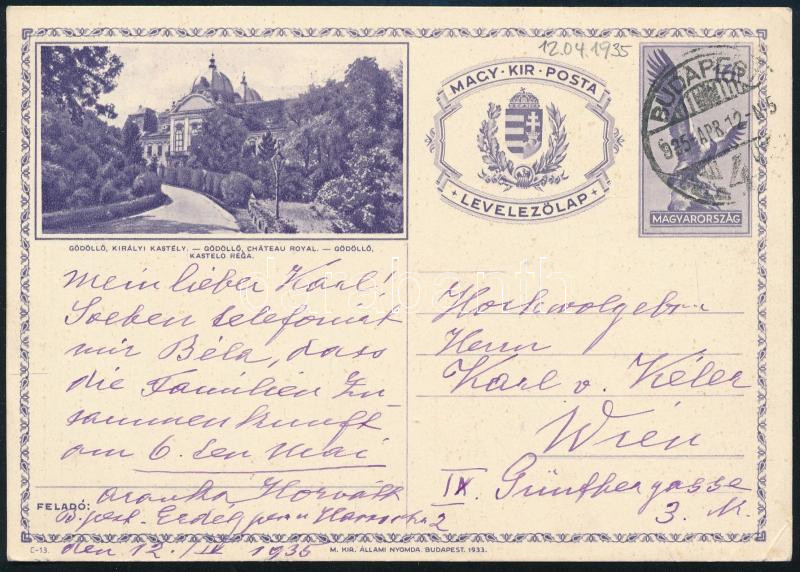 12.04.1935
MAGY · KIR · POSTA
LEVELEZŐLAP
BUDAPEST
935 APR. 12
MAGYARORSZÁG
GÖDÖLLŐ, KIRÁLYI KASTÉLY. — GÖDÖLLŐ, CHÂTEAU ROYAL. — GÖDÖLLŐ,
KASTELO REĜA.
Mein lieber Karl!
Soeben telefoniert
mir Béla, dass
die Familien Zu-
sammenkunft
am 6. ten Mai
Aranka Horváth
FELADÓ:
B.pest.
den 12./IV 1935
Hochwolgeb.
Herrn
Karl v. Kéler
Wien
IX. Günthergasse
3. M.
C-13.
M. KIR. ÁLLAMI NYOMDA. BUDAPEST. 1933.
darabanth